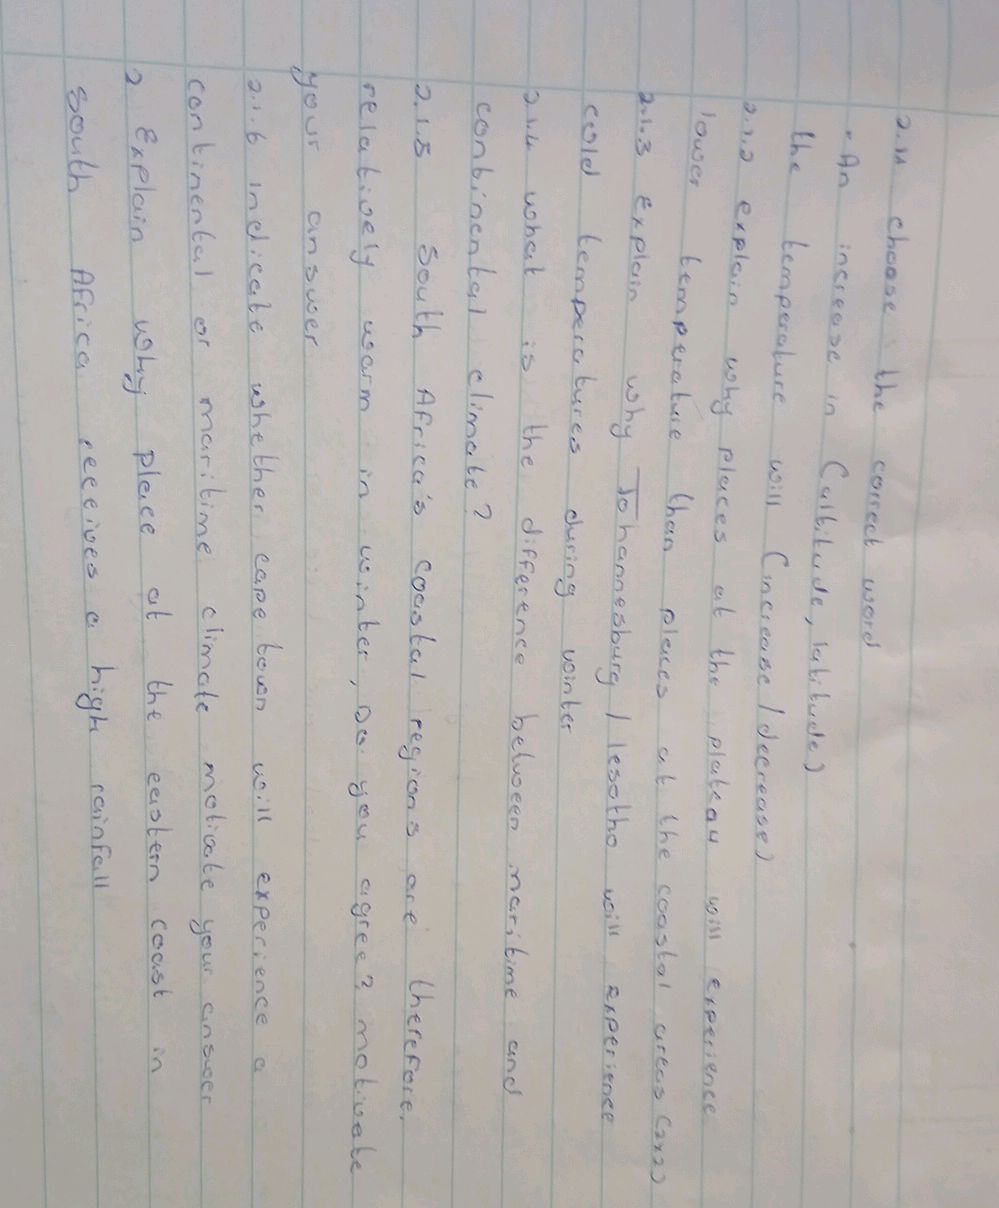 2.1.1 choose the correct word
• An increase in (altitude, latitude)
the temperature will (increase/decrease)
2.1.2 explain why places at the plateau will experience
lower temperature than places at the coastal areas (2x2)
2.1.3 explain why Johannesburg / lesotho will experience
cold temperatures during winter
2.1.4 what is the difference between maritime and
continental climate?
2.1.5 South Africa's coastal regions are therefore,
relatively warm in winter, Do you agree? motivate
your answer
2.1.6 indicate whether cape town will experience a
continental or maritime climate motivate your answer
2 Explain why place at the eastern coast in
South Africa receives a high rainfall